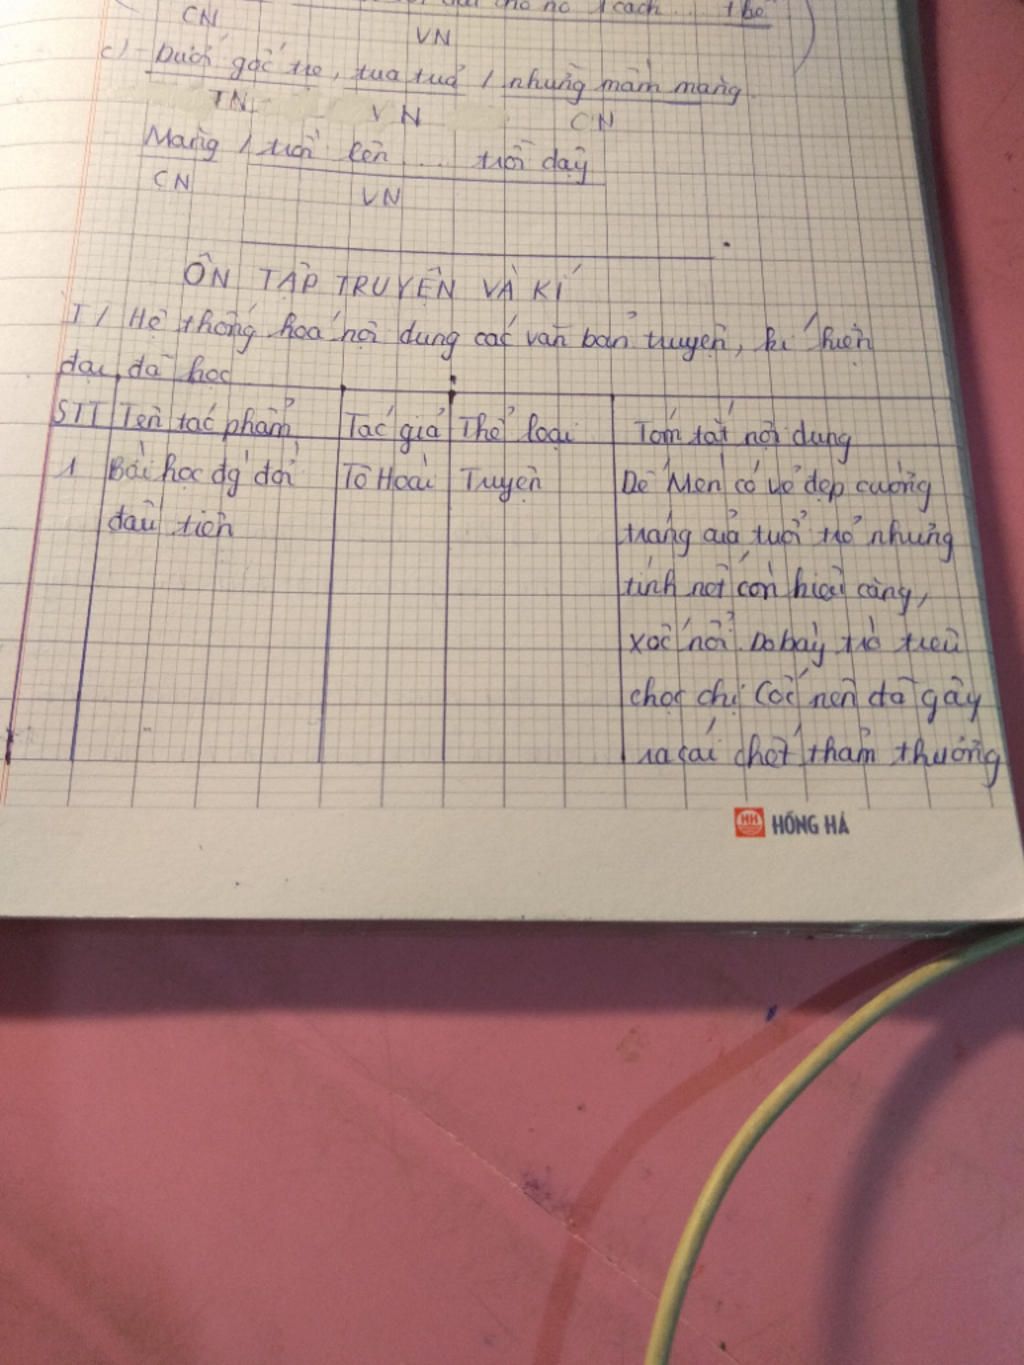 cho nó / cách ... thể
CN
VN
c) - Dưới gốc tre, tua tủa / những mầm măng.
TN VN CN
Măng / trồi lên ... trỗi dậy
CN
VN
ÔN TẬP TRUYỆN VÀ KÍ
I / Hệ thống hoá nội dung các văn bản truyện, kí hiện
đại đã học
STT Tên tác phẩm Tác giả Thể loại Tóm tắt nội dung
1 Bài học đg đời Tô Hoài Truyện Dế Mèn có vẻ đẹp cường
đầu tiên tráng của tuổi trẻ nhưng
tính nết còn kiêu căng,
xốc nổi. Do bày trò trêu
chọc chị Cốc nên đã gây
ra cái chết thảm thương
HỒNG HÀ